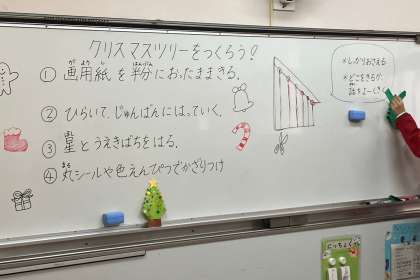 クリスマスツリーをつくろう!
① 画用紙を半分におったままきる。
② ひらいて、じゅんばんにはっていく。
③ 星とうえきばちをはる。
④ 丸シールや色えんぴつでかざりつけ
※しっかりおさえる
※どこをきるか、